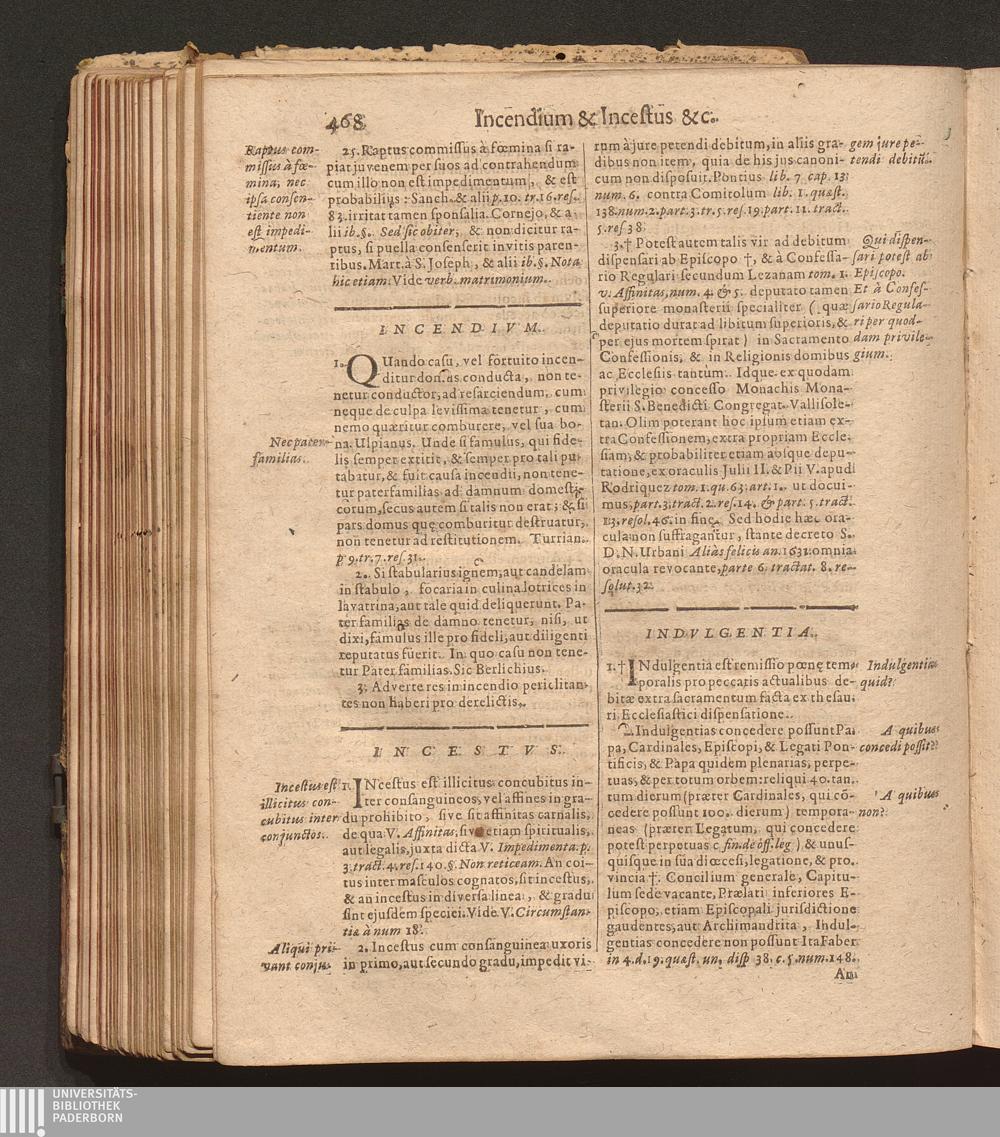 468 Incendium & Incestus &c.
Raptus com-
missus à fœ-
mina, nec
ipsa consen-
tiente non
est impedi-
mentum.
25. Raptus commissus à fœmina si ra-
piat juvenem per suos ad contrahendum
cum illo non est impedimentum, & est
probabilius: Sanch. & alii p. 10. tr. 16. res.
83. irritat tamen sponsalia. Cornejo, & a-
lii ib. §. Sed sic obiter; & non dicitur ra-
ptus, si puella consenserit invitis paren-
tibus. Mart. à S. Joseph, & alii ib. §. Nota
hic etiam. Vide verb. matrimonium.
INCENDIVM.
1. QUando casu, vel fortuito incen-
ditur domus conducta, non te-
netur conductor, ad resarciendum, cum
neque de culpa levissima tenetur, cum
nemo quæritur comburere, vel sua bo-
na. Ulpianus. Unde si famulus, qui fide-
lis semper extitit, & semper pro tali pu-
tabatur, & fuit causa incendii, non tene-
tur paterfamilias ad damnum domesti-
corum, secus autem si talis non erat; & si
pars domus quę comburitur destruatur,
non tenetur ad restitutionem. Turrian.
p 9. tr. 7. res. 31.
Nec pater-
familias.
2. Si stabularius ignem, aut candelam
in stabulo, focaria in culina lotrices in
lavatrina, aut tale quid deliquerunt. Pa-
ter familias de damno tenetur, nisi, ut
dixi, famulus ille pro fideli, aut diligenti
reputatus fuerit. In quo casu non tene-
tur Pater familias. Sic Berlichius.
3. Adverte res in incendio periclitan-
tes non haberi pro derelictis.
INCESTVS.
Incestus est
illicitus con-
cubitus inter
conjunctos.
1. INcestus est illicitus concubitus in-
ter consanguineos, vel affines in gra-
du prohibito, sive sit affinitas carnalis,
de qua V. Affinitas, sive etiam spiritualis,
aut legalis, juxta dicta V. Impedimenta. p.
3. tract. 4. res. 140. §. Non reticeam. An coi-
tus inter masculos cognatos, sit incestus,
& an incestus in diversa linea, & gradu
sint ejusdem speciei. Vide V. Circumstan-
tia à num 18.
Aliqui pri-
vant conju-
2. Incestus cum consanguinea uxoris
in primo, aut secundo gradu, impedit vi-
rum à jure petendi debitum, in aliis gra-
dibus non item, quia de his jus canoni-
cum non disposuit. Pontius lib. 7. cap. 13.
num. 6. contra Comitolum lib. 1. quæst.
138. num. 2. part. 3. tr. 5. res. 19. part. 11. tract.
5. res 38.
gem jure pe-
tendi debitũ.
3. † Potest autem talis vir ad debitum
dispensari ab Episcopo †, & à Confessa-
rio Regulari secundum Lezanam tom. 1.
v. Affinitas, num. 4. & 5. deputato tamen
superiore monasterii specialiter (quæ
deputatio durat ad libitum superioris, &
per ejus mortem spirat) in Sacramento
Confessionis, & in Religionis domibus
ac Ecclesiis tantùm. Idque ex quodam
privilegio concesso Monachis Mona-
sterii S. Benedicti Congregat. Vallisole-
tan. Olim poterant hoc ipsum etiam ex-
tra Confessionem, extra propriam Eccle-
siam, & probabiliter etiam absque depu-
tatione, ex oraculis Julii II. & Pii V. apud
Rodriquez tom. 1. qu. 63. art. 1. ut docui-
mus, part. 3. tract. 2. res. 14. & part. 5. tract.
13. resol. 46. in fine. Sed hodie hæc ora-
cula non suffragantur, stante decreto S.
D. N. Urbani Aliàs felicis an. 1631. omnia
oracula revocante, parte 6. tractat. 8. re-
solut. 32.
Qui dispen-
sari potest ab
Episcopo.
Et à Confes-
sario Regula-
ri per quod-
dam privile-
gium.
INDVLGENTIA.
1. † INdulgentia est remissio pœnę tem-
poralis pro peccatis actualibus de-
bitæ extra sacramentum facta ex thesau-
ri Ecclesiastici dispensatione.
Indulgentia
quid?
2. Indulgentias concedere possunt Pa-
pa, Cardinales, Episcopi, & Legati Pon-
tificis, & Papa quidem plenarias, perpe-
tuas, & per totum orbem: reliqui 40. tan-
tum dierum (præter Cardinales, qui cō-
cedere possunt 100. dierum) tempora-
neas (præter Legatum, qui concedere
potest perpetuas c. fin. de off. leg) & unus-
quisque in sua diœcesi, legatione, & pro-
vincia †. Concilium generale, Capitu-
lum sede vacante, Prælati inferiores E-
piscopo, etiam Episcopali jurisdictione
gaudentes, aut Archimandrita, Indul-
gentias concedere non possunt Ita Faber
in 4. d. 19. quæst. un. disp 38. c. 5. num. 148.
A quibus
concedi possit?
A quibus
non?
An
UNIVERSITÄTS-
BIBLIOTHEK
PADERBORN